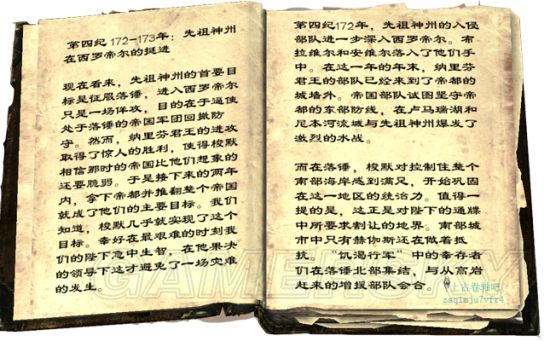 第四纪 172-173年：先祖神州
在西罗帝尔的挺进
现在看来，先祖神州的首要目
标是征服落锤，进入西罗帝尔
只是一场佯攻，目的在于逼使
处于落锤的帝国军团回撤防
守。然而，纳里芬君王的进攻
取得了惊人的胜利，使得梭默
相信那时的帝国比他们想象的
还要脆弱。于是接下来的两年
内，拿下帝都并推翻整个帝国
就成了他们的主要目标。我们
知道，梭默几乎就实现了这个
目标。幸好在最艰难的时刻我
们的陛下急中生智，在他果决
的领导下这才避免了一场灾难
的发生。
第四纪172年，先祖神州的入侵
部队进一步深入西罗帝尔。布
拉维尔和安维尔落入了他们手
中。在这一年的年末，纳里芬
君王的部队已经来到了帝都的
城墙外。帝国部队试图坚守帝
都的东部防线，在卢马瑞湖和
尼本河流域与先祖神州爆发了
激烈的水战。
而在落锤，梭默对控制住整个
南部海岸感到满足，开始巩固
在这一地区的统治力。值得一
提的是，这正是对陛下的通牒
中所要求割让的地界。南部城
市中只有赫你斯还在做着抵
抗。“饥渴行军”中的幸存者
们在落锤北部集结，与从高岩
赶来的增援部队会合。
上古卷轴吧
zaqimju7vfr4
GAMERSKY